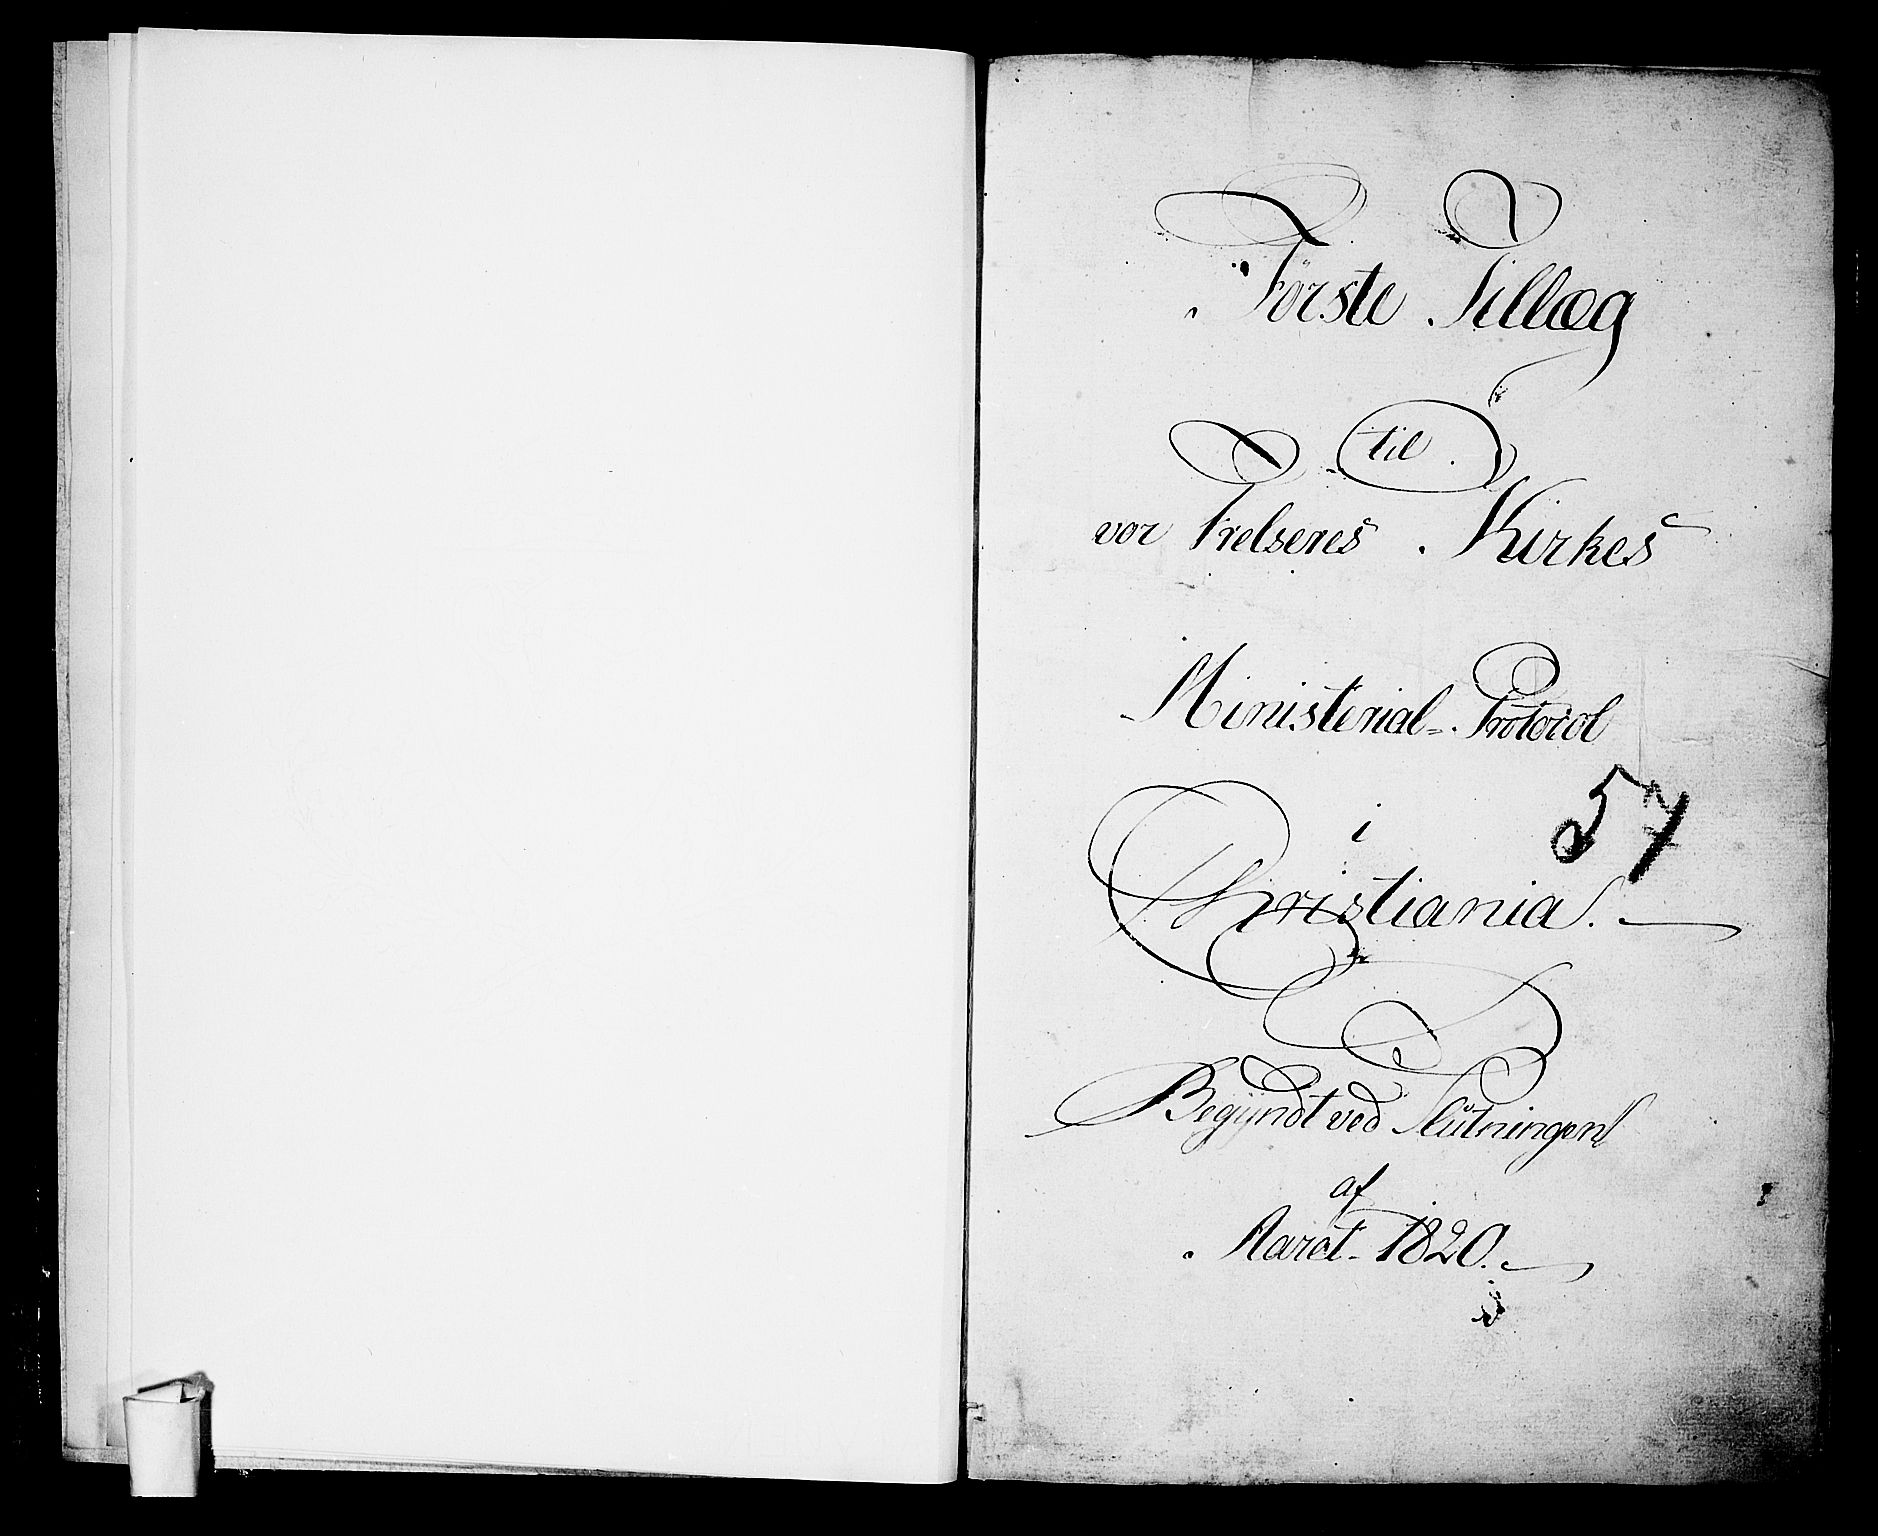 Første Tillæg
til
vor Frelseres Kirkes
Ministerial=Protocol
57
i
Christiania.
Begyndt ved Slutningen
af
Aaret 1820.